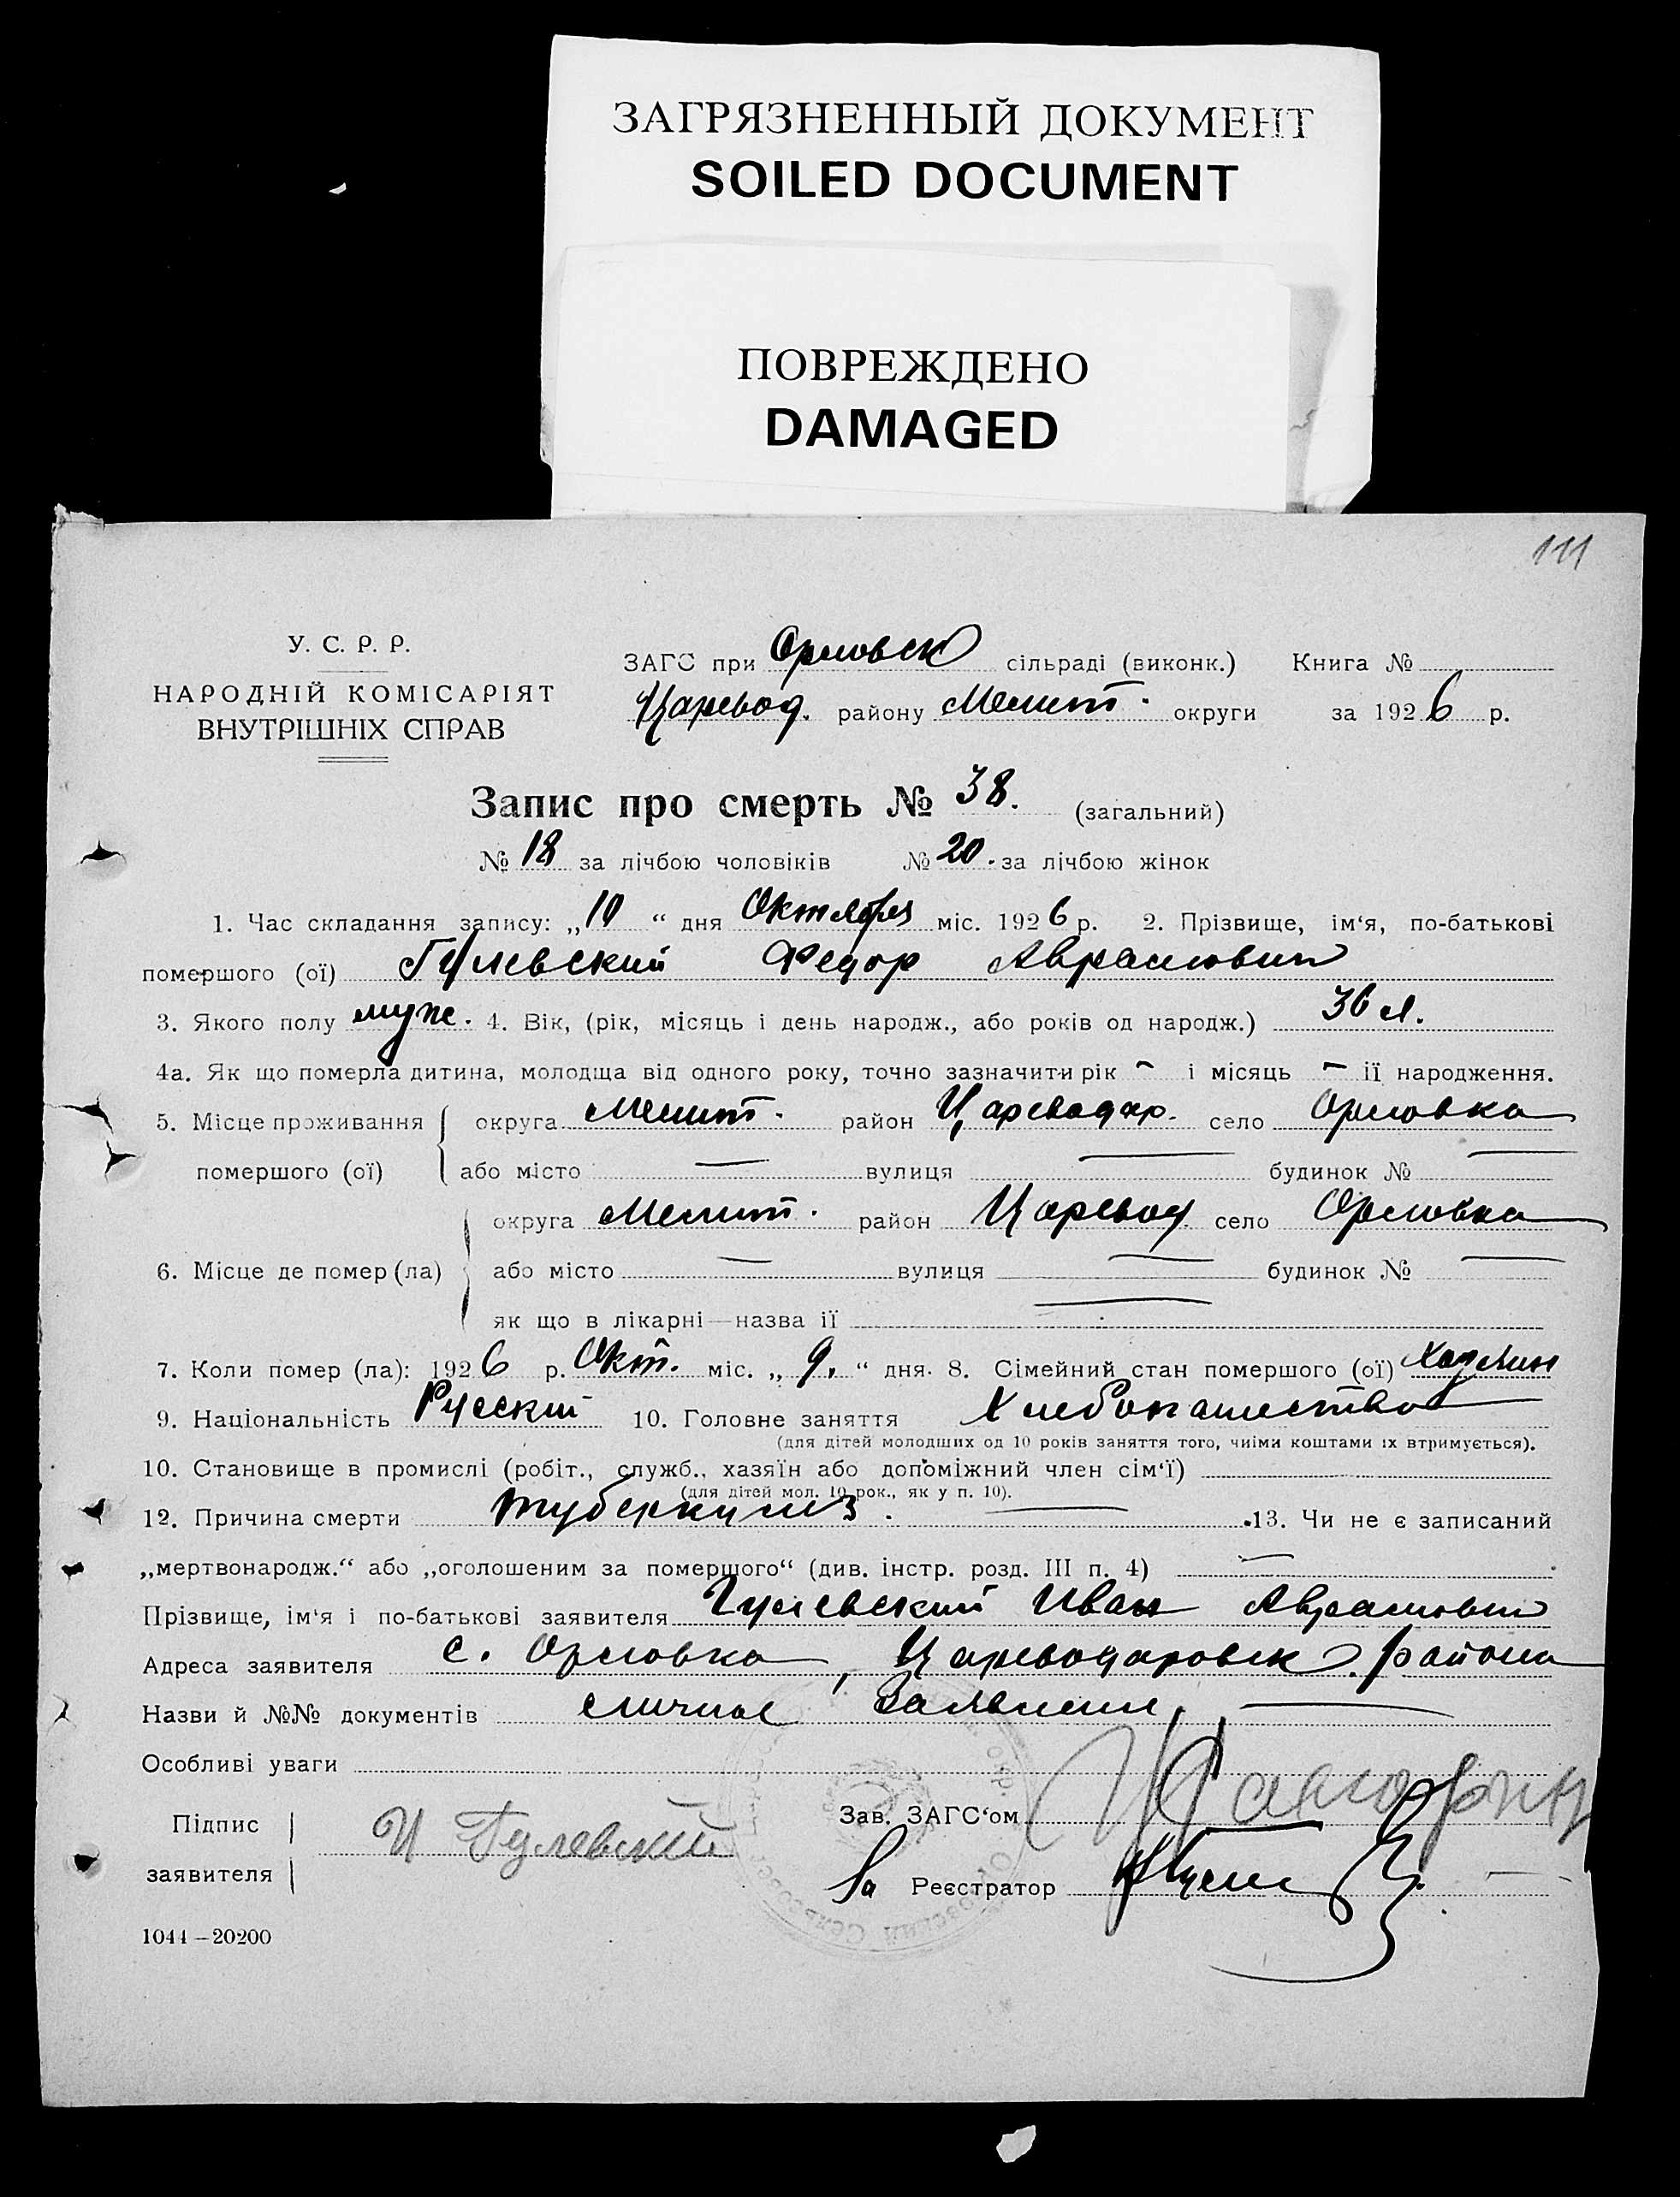 ЗАГРЯЗНЕННЫЙ ДОКУМЕНТ
SOILED DOCUMENT
ПОВРЕЖДЕНО
DAMAGED
111
У. С. Р. Р.
НАРОДНІЙ КОМІСАРІЯТ
ВНУТРІШНІХ СПРАВ
ЗАГС при Орловск сільраді (виконк.) Книга №
Царевод. району Мелит. округи за 1926 р.
Запис про смерть № 38. (загальний)
№ 18 за лічбою чоловіків № 20. за лічбою жінок
1. Час складання запису: „10“ дня Октября міс. 1926 р. 2. Прізвище, ім‘я, по-батькові
помершого (ої) Гулевский Федор Аврамович
3. Якого полу муж. 4. Вік, (рік, місяць і день народж., або років од народж.) 36 л.
4а. Як що померла дитина, молодща від одного року, точно зазначити рік – і місяць – її народження.
5. Місце проживання округа Мелит. район Цареводар. село Орловка
помершого (ої) або місто — вулиця — будинок № —
округа Мелит. район Царевод село Орловка
6. Місце де помер (ла) або місто — вулиця — будинок № —
як що в лікарні—назва її —
7. Коли помер (ла): 1926 р. Окт. міс. „9.“ дня. 8. Сімейний стан помершого (ої)
9. Національність Русский 10. Головне заняття Хлебопашество
(для дітей молодших од 10 років заняття того, чиїми коштами їх втримується).
10. Становище в промислі (робіт., служб., хазяїн або допоміжний член сім‘ї)
(для дітей мол. 10 рок., як у п. 10).
12. Причина смерти туберкулиз. — 13. Чи не є записаний
„мертвонародж.“ або „оголошеним за помершого“ (див. інстр. розд. III п. 4) —
Прізвище, ім‘я і по-батькові заявителя Гулевский Иван Аврамович
Адреса заявителя с. Орловка, Цареводаровск. района
Назви й №№ документів личное заявление —
Особливі уваги
Підпис заявителя И Гулевский
Зав. ЗАГС‘ом
За Реєстратор
1044—20200